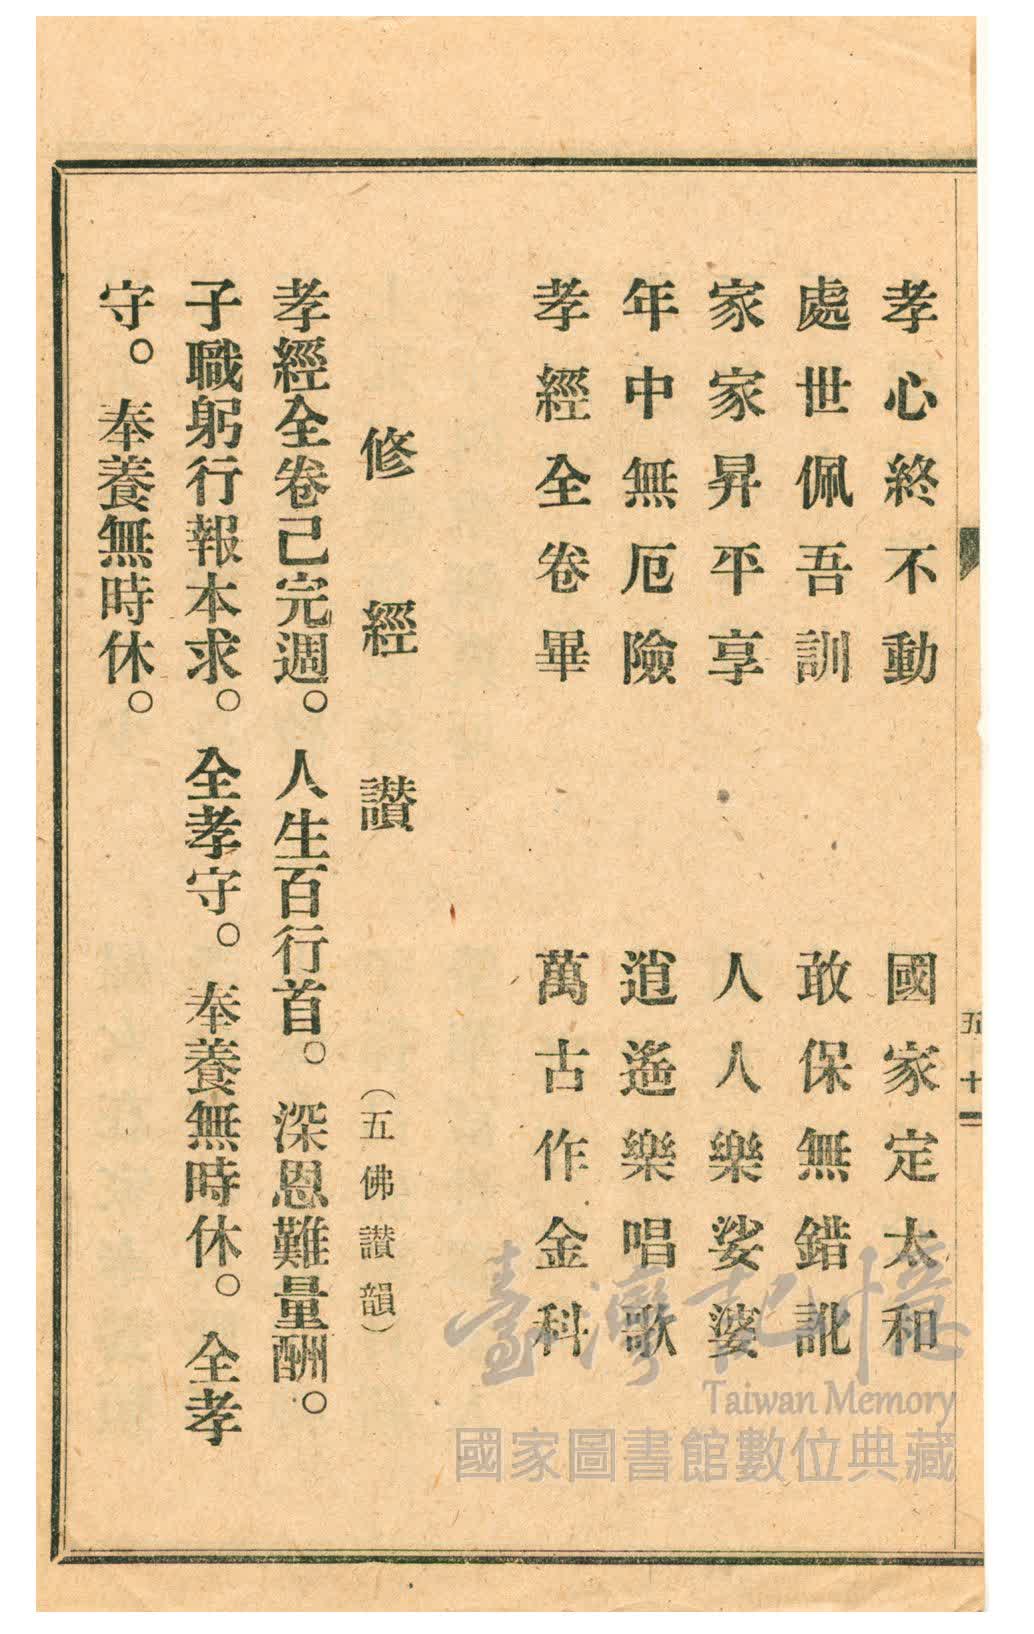 五十
孝心終不動　國家定太和
處世佩吾訓　敢保無錯訛
家家昇平享　人人樂娑婆
年中無厄險　逍遙樂唱歌
孝經全卷畢　萬古作金科
修經讚　（五佛讚韻）
孝經全卷己完週。人生百行首。深恩難量酬。
子職躬行報本求。全孝守。奉養無時休。全孝
守。奉養無時休。
臺灣記憶
Taiwan Memory
國家圖書館數位典藏